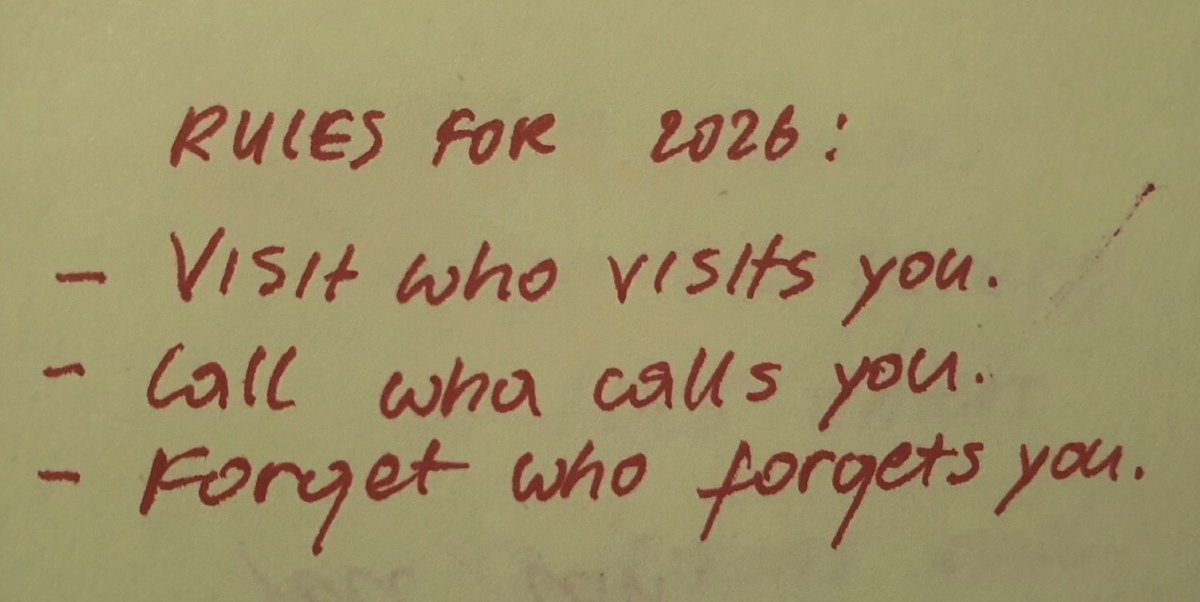 RULES FOR 2026:
- Visit who visits you.
- Call who calls you.
- Forget who forgets you.